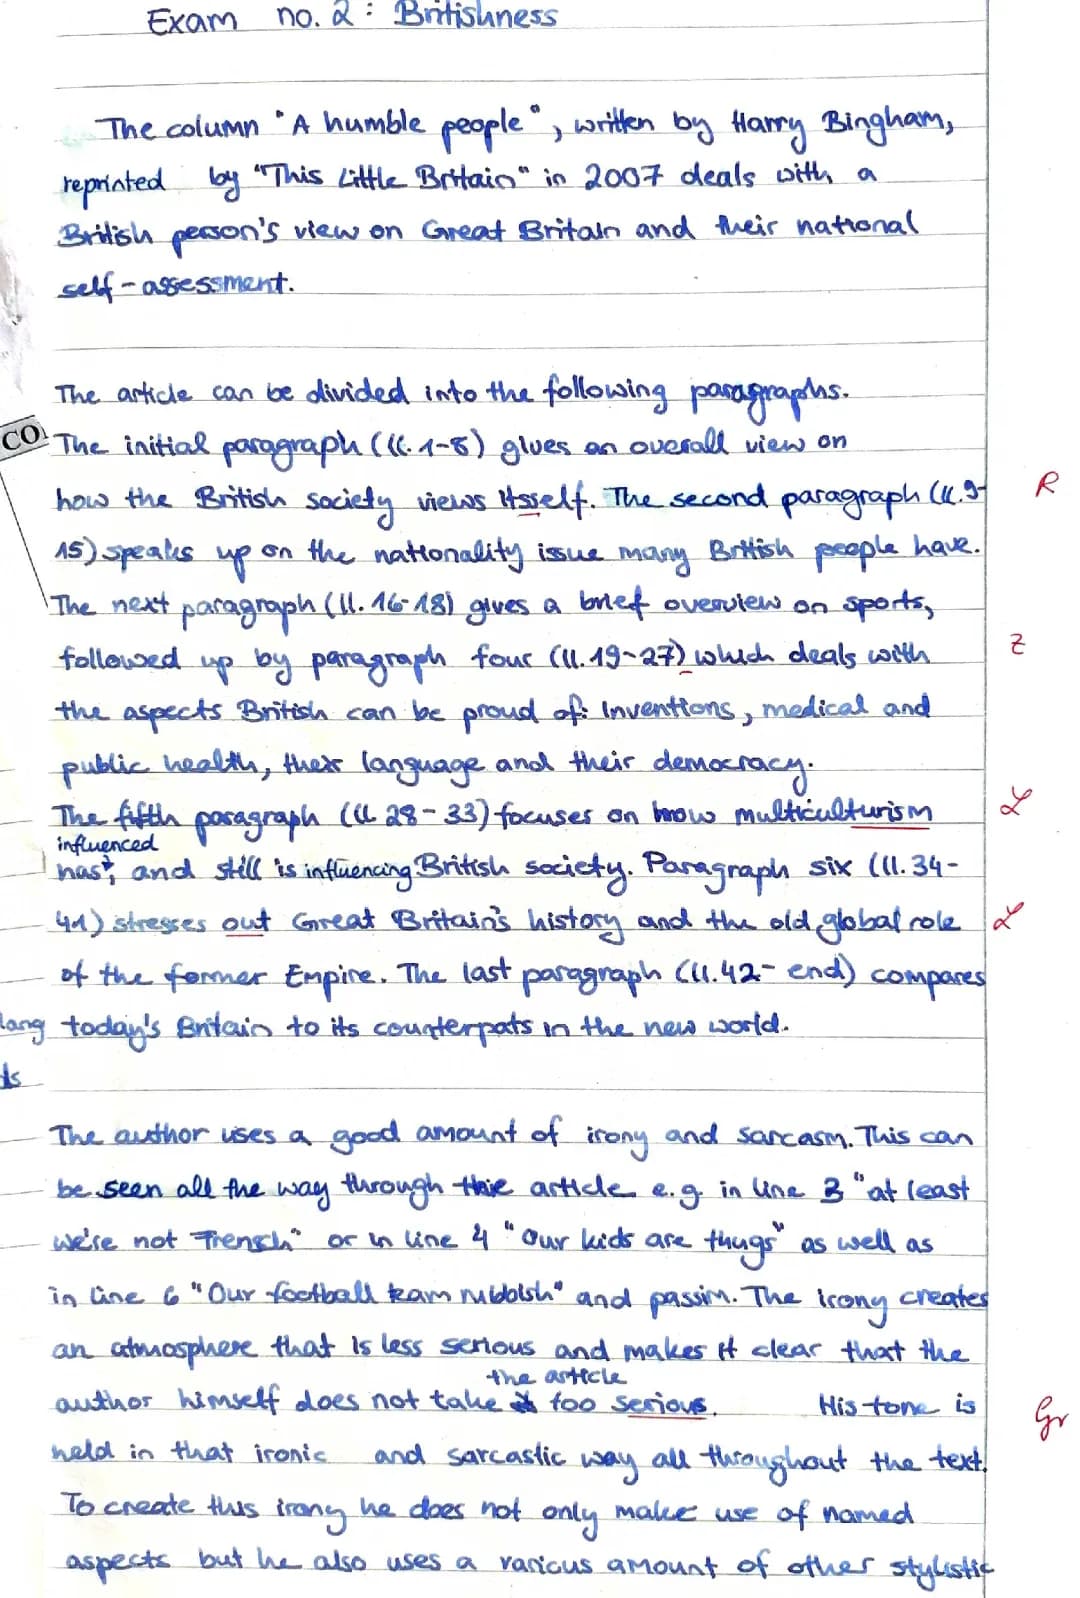 Exam no. 2: Britishness
The column "A humble people", written by Harry Bingham,
reprinted by "This Little Britain" in 2007 deals with a
British person's view on Great Britain and their national
self-assessment.
The article can be divided into the following paragraphs.
CO
The initial paragraph (ll. 1-8) gives an overall view on
how the British society views itsself. The second paragraph (ll. 9- R
15) speaks up on the nationality issue many British people have.
The next paragraph (ll. 16-18) gives a brief overview on sports,
followed up by paragraph four (ll. 19-27) which deals with Z
the aspects British can be proud of: Inventions, medical and
public health, their language and their democracy.
The fifth paragraph (ll 28-33) focuses on how multiculturism L
influenced
has, and still is influencing British society. Paragraph six (ll. 34-
41) stresses out Great Britain's history and the old global role L
of the former Empire. The last paragraph (ll. 42- end) compares
lang
today's Britain to its counterpats in the new world.
ds
The author uses a good amount of irony and sarcasm. This can
be seen all the way through the article e.g. in line 3 "at least
we're not French" or in line 4 "Our kids are thugs" as well as
in line 6 "Our football team rubbish" and passim. The irony creates
an atmosphere that is less serious and makes it clear that the
the article
author himself does not take too serious. His tone is Gr
held in that ironic and sarcastic way all throughout the text.
To create this irony he does not only make use of named
aspects but he also uses a various amount of other stylistic